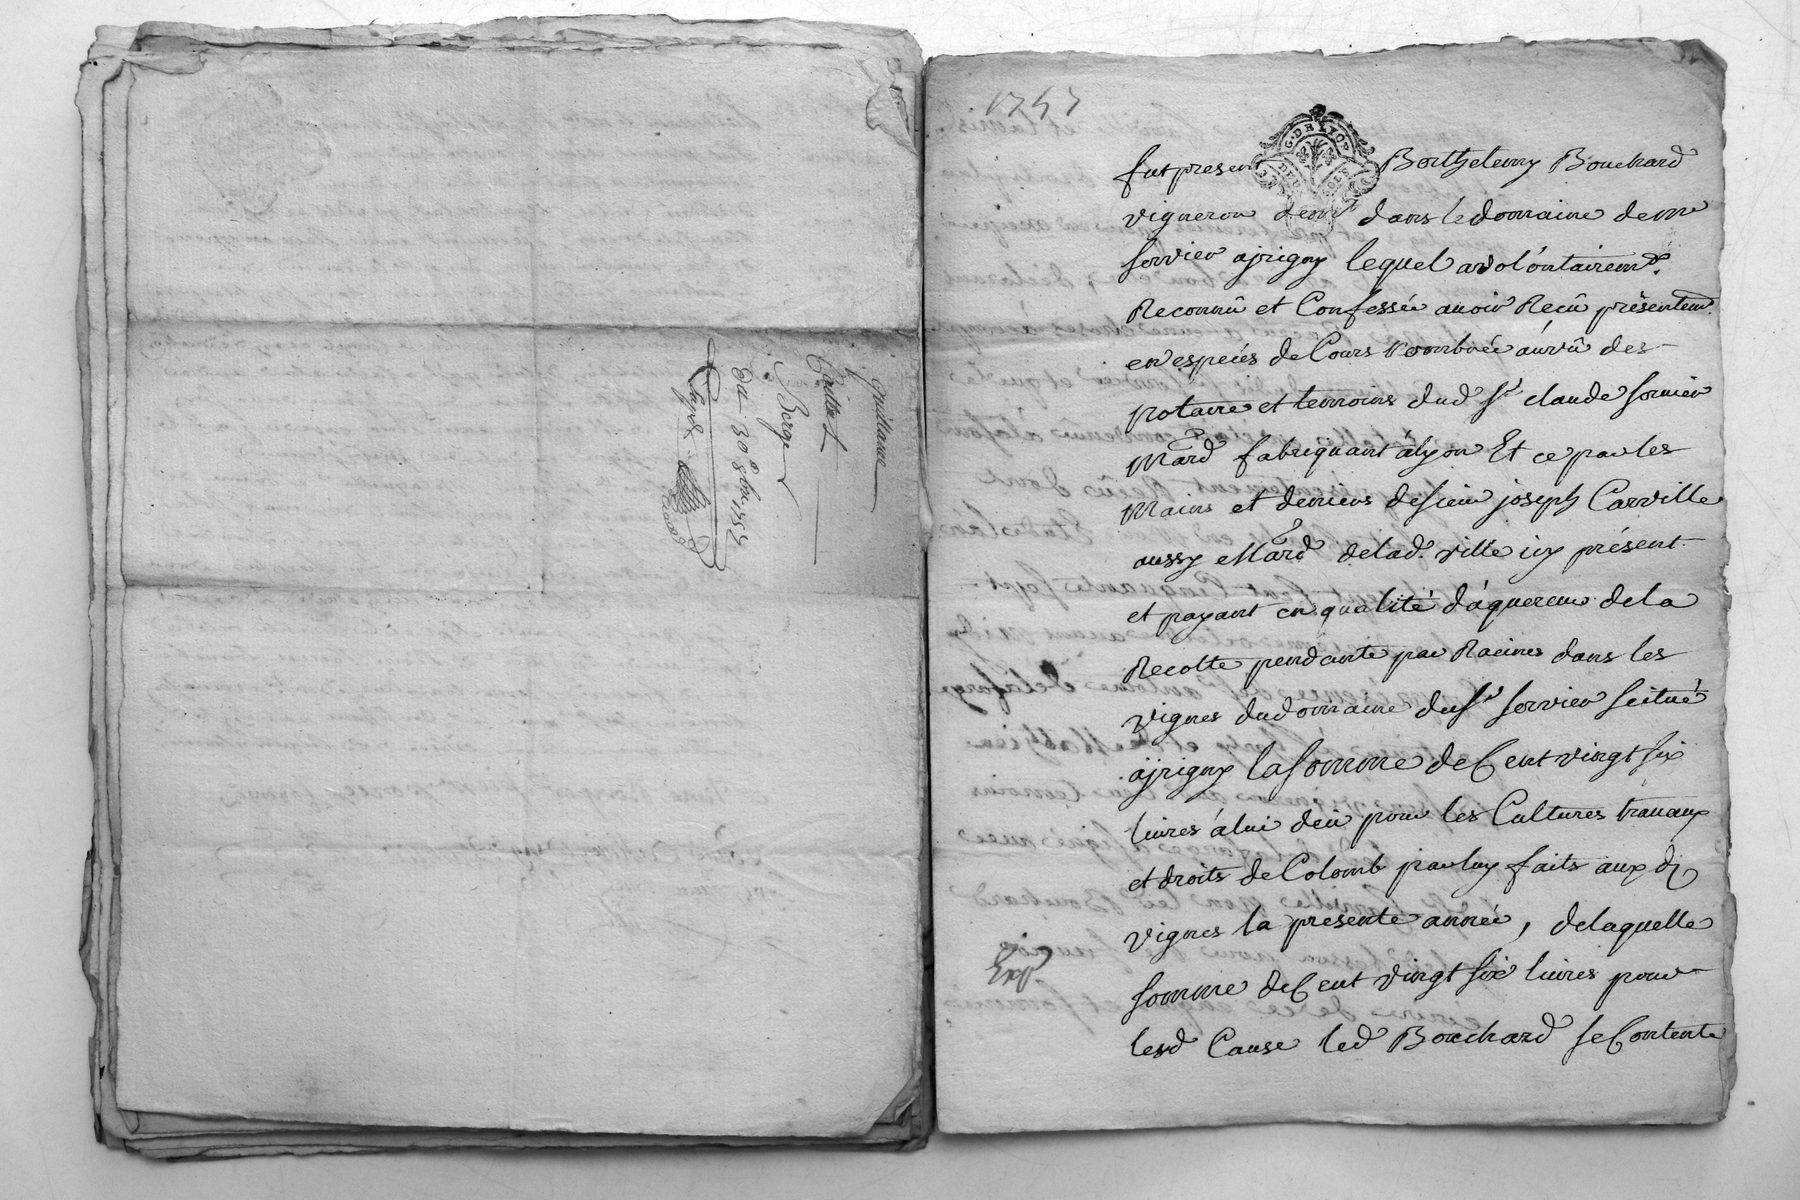 Guillaume
Caillot
Berger
du 30e 8bre 1757
1757
G. DE LYON
fut present Barthelemy Bouchard
vigneron demt dans le domaine de mr
Sorvier a jrigny lequel a volontairemt
Reconnû et Confessée auoir Recû présentemt
en especes de Cours nombrée au vû des
notaire et temoins dud Sr claude Sorvier
Mard fabriquant a lyon Et ce par les
Mains et deniers de sieur joseph Carville
aussy Mard de lad. ville icy présent
et payant en qualité d'aquereur de la
Recolte pendante par Racines dans les
vignes du domaine du Sr Sorvier scitué
a jrigny la somme de Cent vingt six
liures a lui deü pour les Cultures trauaux
et droits de Colomb par luy faits aux d
vignes la presente année, de laquelle
somme de Cent vingt six liures pour
lesd Cause led Bouchard se Contente
Exp